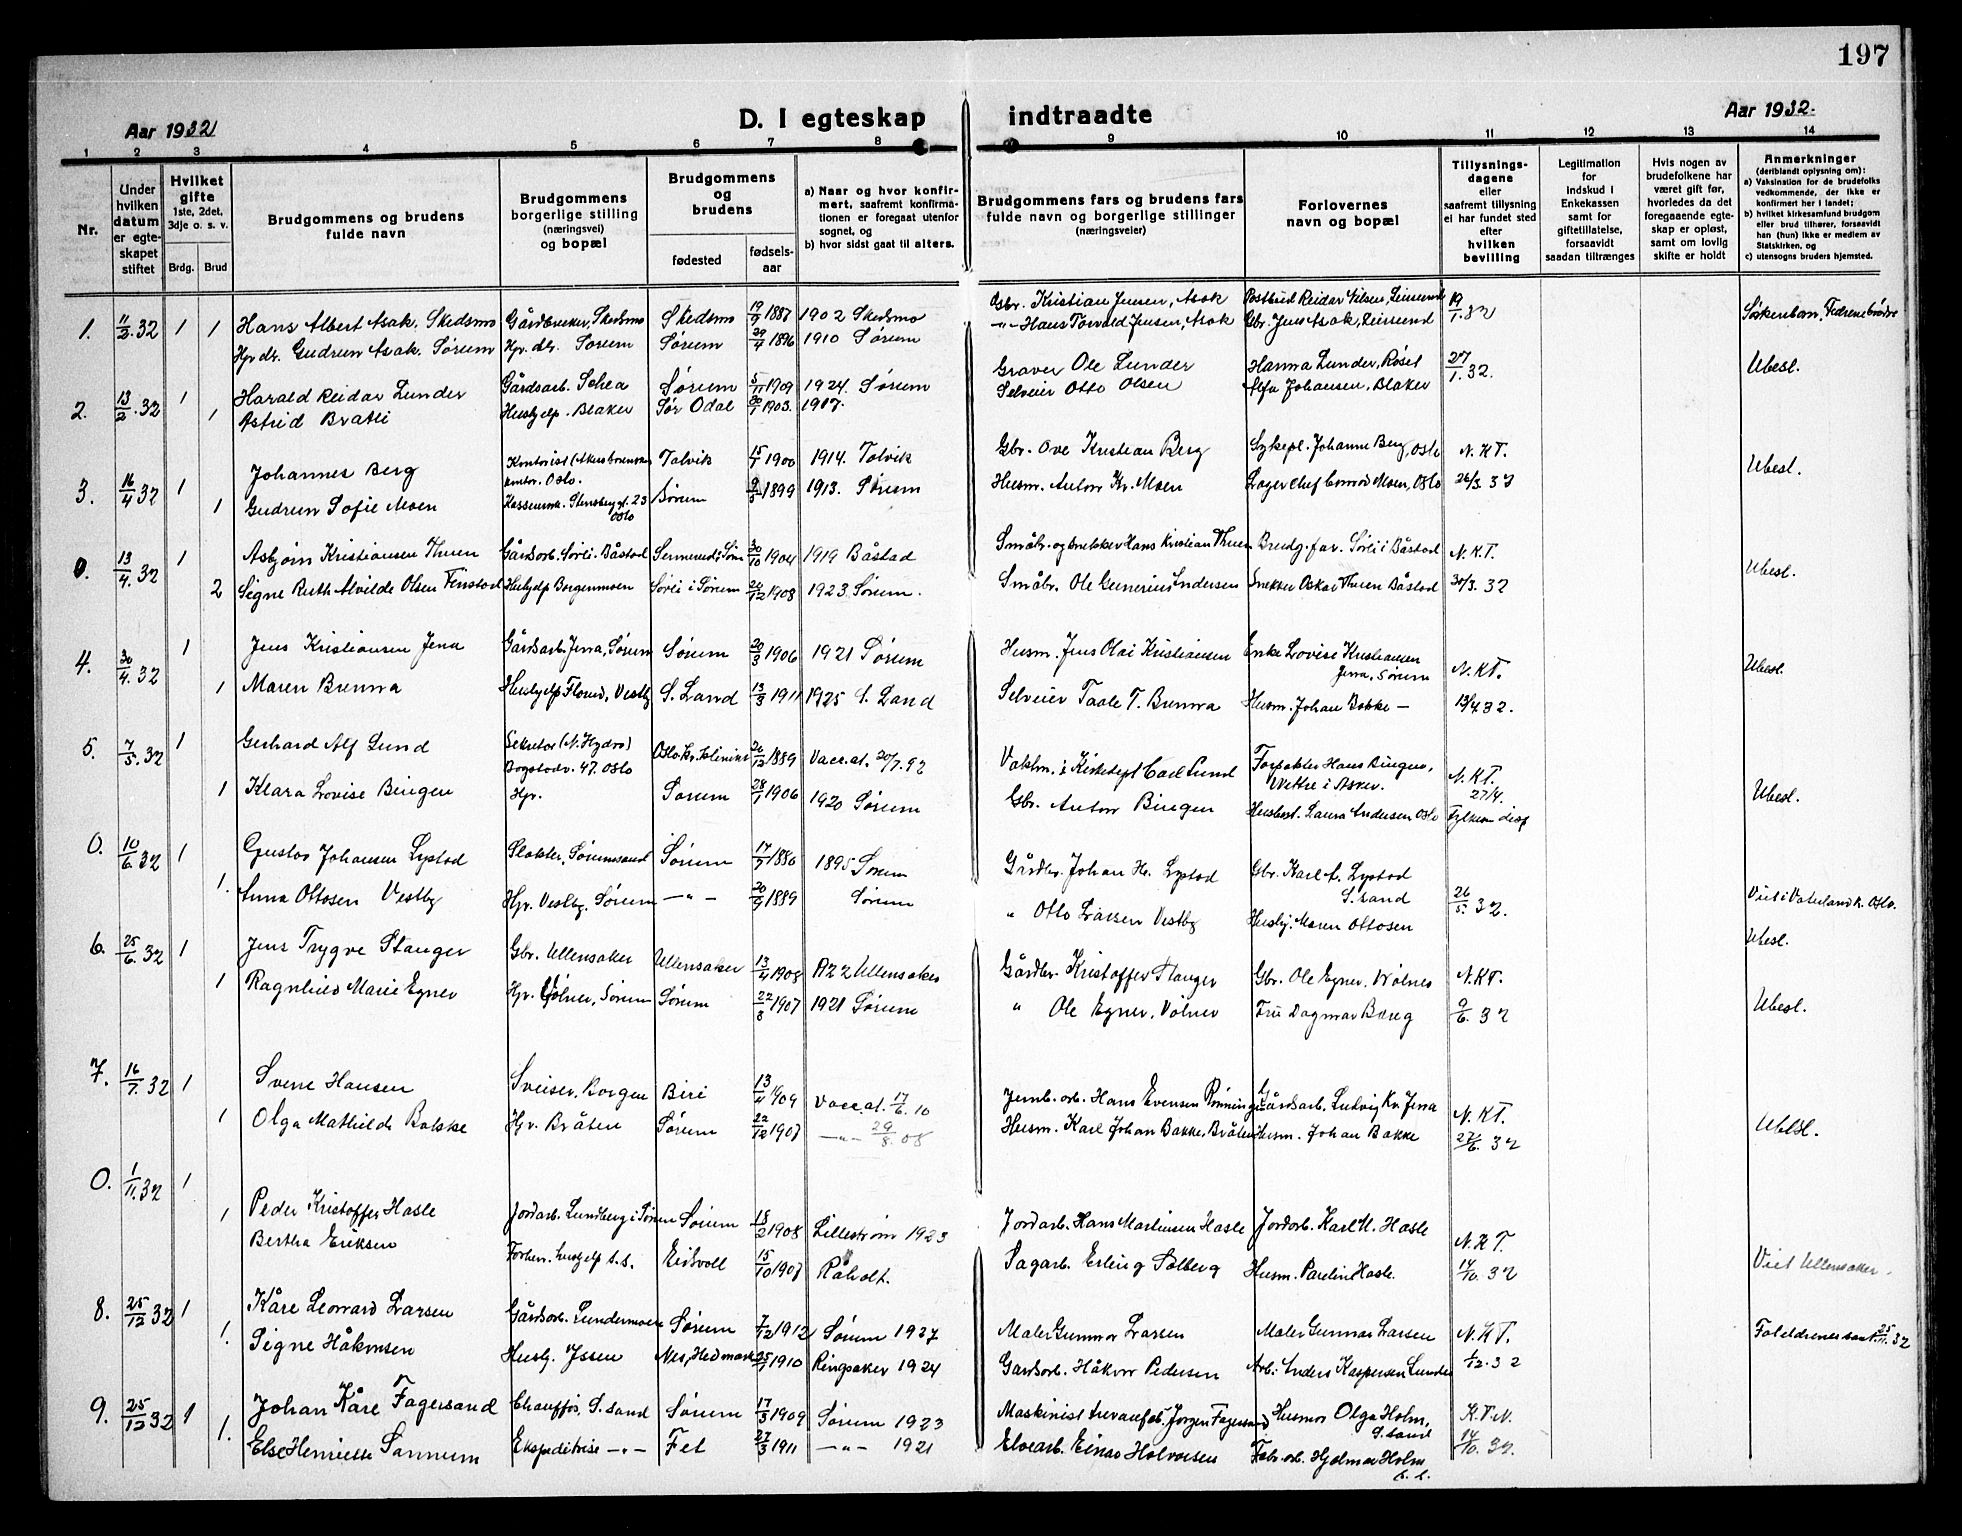 197
Aar 1932
D. I egteskap indtraadte
Aar 1932.
1 2 3 4 5 6 7 8 9 10 11 12 13 14
Nr.
Under hvilken datum er egteskapet stiftet
Hvilket gifte
1ste, 2det, 3dje o. s. v.
Brdg. Brud
Brudgommens og brudens fulde navn
Brudgommens borgerlige stilling (næringsvei) og bopæl
Brudgommens og brudens
fødested
fødselsaar
a) Naar og hvor konfirmert, saafremt konfirmationen er foregaat utenfor sognet, og
b) hvor sidst gaat til alters.
Brudgommens fars og brudens fars fulde navn og borgerlige stillinger (næringsveier)
Forlovernes navn og bopæl
Tillysningsdagene eller saafremt tillysning ei har fundet sted efter hvilken bevilling
Legitimation for indskud i Enkekassen samt for giftetillatelse, forsaavidt saadan tiltrænges
Hvis nogen av brudefolkene har været gift før, hvorledes da det foregaaende egteskap er opløst, samt om lovlig skifte er holdt
Anmerkninger (deriblandt oplysning om):
a) Vaksination for de brudefolks vedkommende, der ikke er konfirmert her i landet;
b) hvilket kirkesamfund brudgom eller brud tilhører, forsaavidt han (hun) ikke er medlem av Statskirken, og
c) utensogns bruders hjemsted.
1. 11/2.32 1 1 Hans Albert Asak, Skedsmo Gårdbruker, Skedsmo Skedsmo 19/9 1887 1902 Skedsmo Gbr. Kristian Jensen, Asak Postbud Reidar Nilsen, Leirsund 19/1.32 Søskenbarn, Fedrene brødre
Hpr. dr. Gudrun Asak, Sørum Hpr. dr. Sørum Sørum 29/4 1896 1910 Sørum -"- Hans Torvald Jensen, Asak Gbr. Jens Asak, Leirsund
2. 13/2.32 1 Harald Reidar Lunder Gårdsarb. Schea Sørum 5/11 1909 1924. Sørum Graver Ole Lunder Hanna Lunder, Røset 27/1.32. Ubesl.
1 Astrid Bratli Hushjelp. Blaker Sør Odal 30/1 1903. 1917. Selveier Otto Olsen Alfa Johansen, Blaker
3. 16/4 32 1 Johannes Berg Kontorist (Akersbanenes kontor. Oslo. Talvik 15/1 1900 1914. Talvik Gbr. Ove Kristian Berg Sykepl. Johanne Berg, Oslo N. K T. Ubesl.
1 Gudrun Sofie Moen Kassemsk. Stensberggt. 23 Oslo Sørum 9/5 1899 1913. Sørum Husm. Anton Kr. Moen Lagerchef Conrad Moen, Oslo 26/3. 32
0. 13/4.32 1 Asbjørn Kristiansen Thuen Gårdsarb. Sørli. Båstad 30/10 1904 1919 Båstad Småbr. og snekker Hans Kristian Thuen Brudg. far. Sørli i Båstad N. K.T. Ubesl.
2 Signe Ruth Alvilde Olsen Finstad Hushjelp Borgenmoen Sørli i Sørum 24/12 1908 1923 Sørum. Småbr. Ole Gunerius Andersen Snekker Oskar Thuen Båstad 30/3. 32
4. 30/4.32 1 Jens Kristiansen Jena Gårdsarb. Jerna, Sørum Sørum 20/3 1906 1921 Sørum Husm. Jens Olai Kristiansen Enke Lovise Kristiansen Jerna, Sørum N. KT. Ubesl.
1 Maren Brenna S. Land 13/3 1911 1925 S. Land Selveier Taale T. Brenna Husm. Johan Bakke - 13/4 32.
5. 7/5.32 1 Gerhard Alf Lund Sekretær (N. Hydro) Bogstadv. 47. Oslo Oslo Kv. klinikk 26/12 1889 Vacc. at. 20/7. 92 Vaktm. i Kirkedept Carl Lund Forpakter Hans Bingen, Wettre i Asker. N. KT. 27/4.
1 Klara Lovise Bingen Hpr. Sørum 28/1 1906 1920 Sørum Gbr. Anton Bingen Husbest. Laura Andersen Oslo Fylkesm disp Ubesl.
0. 10/6.32 1 Gustav Johansen Lystad Slakter, Sørumsand Sørum 17/9 1880 1895 Sørum Gårdbr. Johan H. Lystad Gbr. Karl A. Lystad S. sand 26/5. 32.
1. Anna Ottosen Vestby Hpr. Vestby. Sørum -"- 20/9 1889 Sørum " Otto Larsen Vestby Hushj. Maren Ottosen Viet i Vaterland k. Oslo.
Ubesl.
6. 25/6.32 1 Jens Trygve Stanger Gbr. Ullensaker Ullensaker 13/4 1908 1922 Ullensaker Gårdbr. Kristoffer Stanger Gbr. Ole Egner, Vølner N. KT.
1 Ragnhild Marie Egner Hpr. Vølner, Sørum Sørum 22/8 1907 1921 Sørum " Ole Egner, Vølner Fru Dagmar Berg 9/6. 32 Ubesl.
7. 16/7.32 1 Sverre Hansen Sveiser. Borgen Biri 13/11 1909 Vacc. at. 17/6. 10 Jernb. arb. Hans Evensen Rønningen Gårdsarb. Ludvig Kr. Jerna N. KT.
1 Olga Mathilde Bakke Hpr. Bråten Sørum 22/12 1907 -"- 29/8. 08 Husm. Karl Johan Bakke, Bråten Husm. Johan Bakke 27/6. 32 Ubesl.
0. 1/11.32 1 Peder Kristoffer Hasle Jordarb. Lundberg i Sørum Sørum 18/2 1908 Lillestrøm 1923 Jordarb. Hans Martinsen Hasle Jordarb. Karl M. Hasle N. K T.
1 Bertha Eriksen Forhen. hushjelp s.s. Eidsvoll 15/10 1907 Råholt. Sagarb. Erling Solberg Husm. Pauline Hasle. 14/10. 32 Viet Ullensaker.
8. 25/12 32 1 Kåre Leonard Larsen Gårdsarb. Lundermoen Sørum 7/12 1912 Sørum 1927 Maler Gunnar Larsen Maler Gunnar Larsen N. KT.
1. Signe Håkonsen Hushj. Issen Nes, Hedmark 25/1 1910 Ringsaker 1924 Gårdsarb. Håkon Pedersen Arb. Anders Kaspersen Lunder 1/12. 32 Foreldrenes sam. 25/11. 32
9. 25/12 32 1 Johan Kåre Fagersand Chauffør, S. sand Sørum 17/3 1909 Sørum 1923 Maskinist trevarefab. Jørgen Fagersand Husmor Olga Holm, S. sand K. T. N.
1. Else Henriette Sannum Ekspeditrise -"- Fet 27/3 1911 -"- 1921 Elvearb. Einar Halvorsen Fabr. arb. Hjalmar Holm s. s. 14/10. 32.